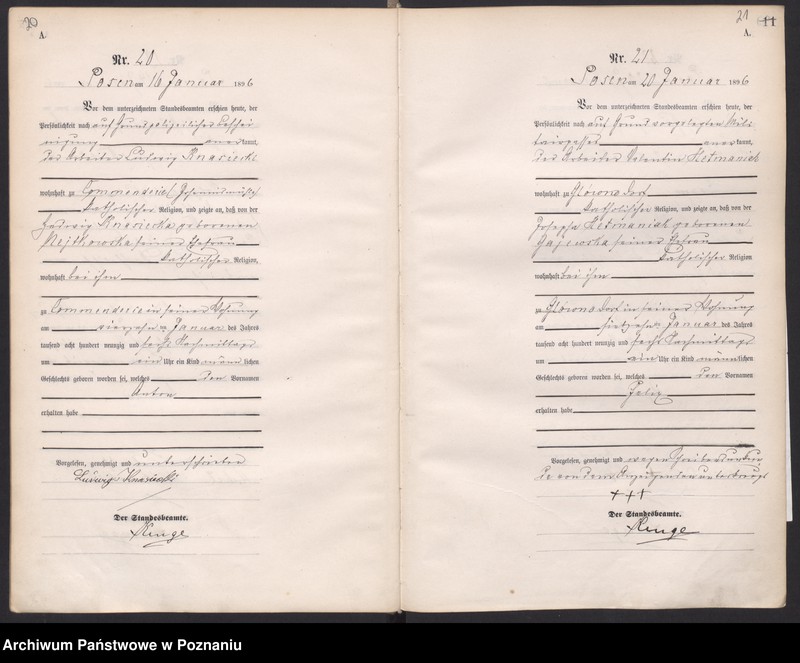 20
A.
Nr. 20
Posen am 16 Januar 1896
Vor dem unterzeichneten Standesbeamten erschien heute, der
Persönlichkeit nach auf Grund polizeilicher Beschei
nigung anerkannt,
der Arbeiter Ludwig Knasiecki
wohnhaft zu Commenderie
katholischer Religion, und zeigte an, daß von der
Hedwig Knasiecka geborenen
Nejtkowska seiner Ehefrau
katholischer Religion,
wohnhaft bei ihm
zu Commenderie in seiner Wohnung
am vierzehnten Januar des Jahres
tausend acht hundert neunzig und sechs Nachmittags
um ein Uhr ein Kind männlichen
Geschlechts geboren worden sei, welches den Vornamen
Anton
erhalten habe
Vorgelesen, genehmigt und unterschrieben
Ludwig Knasiecki
Der Standesbeamte.
Runge
21
11
A.
Nr. 21
Posen am 20 Januar 1896
Vor dem unterzeichneten Standesbeamten erschien heute, der
Persönlichkeit nach auf Grund vorgelegten Mili
tairpasses anerkannt,
der Arbeiter Valentin Hetmaniak
wohnhaft zu Glowno Dorf
katholischer Religion, und zeigte an, daß von der
Josepha Hetmaniak geborenen
Gajewska seiner Ehefrau
katholischer Religion
wohnhaft bei ihm
zu Glowno Dorf in seiner Wohnung
am Januar des Jahres
tausend acht hundert neunzig und sechs Nachmittags
um ein Uhr ein Kind männlichen
Geschlechts geboren worden sei, welches den Vornamen
Felix
erhalten habe
Vorgelesen, genehmigt und wegen Schreibensunkun
de von dem Anzeigenden unterkreuzt
+++
Der Standesbeamte.
Runge
Archiwum Państwowe w Poznaniu